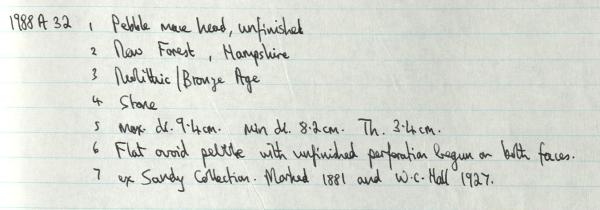 1988 A 32 1 Pebble mace head, unfinished
2 New Forest, Hampshire
3 Neolithic/Bronze Age
4 Stone
5 max. di. 9.4cm. min di. 8.2cm. Th. 3.4cm.
6 Flat ovoid pebble with unfinished perforation begun on both faces.
7 ex Sandy Collection. Marked 1881 and W.C. Hall 1927.